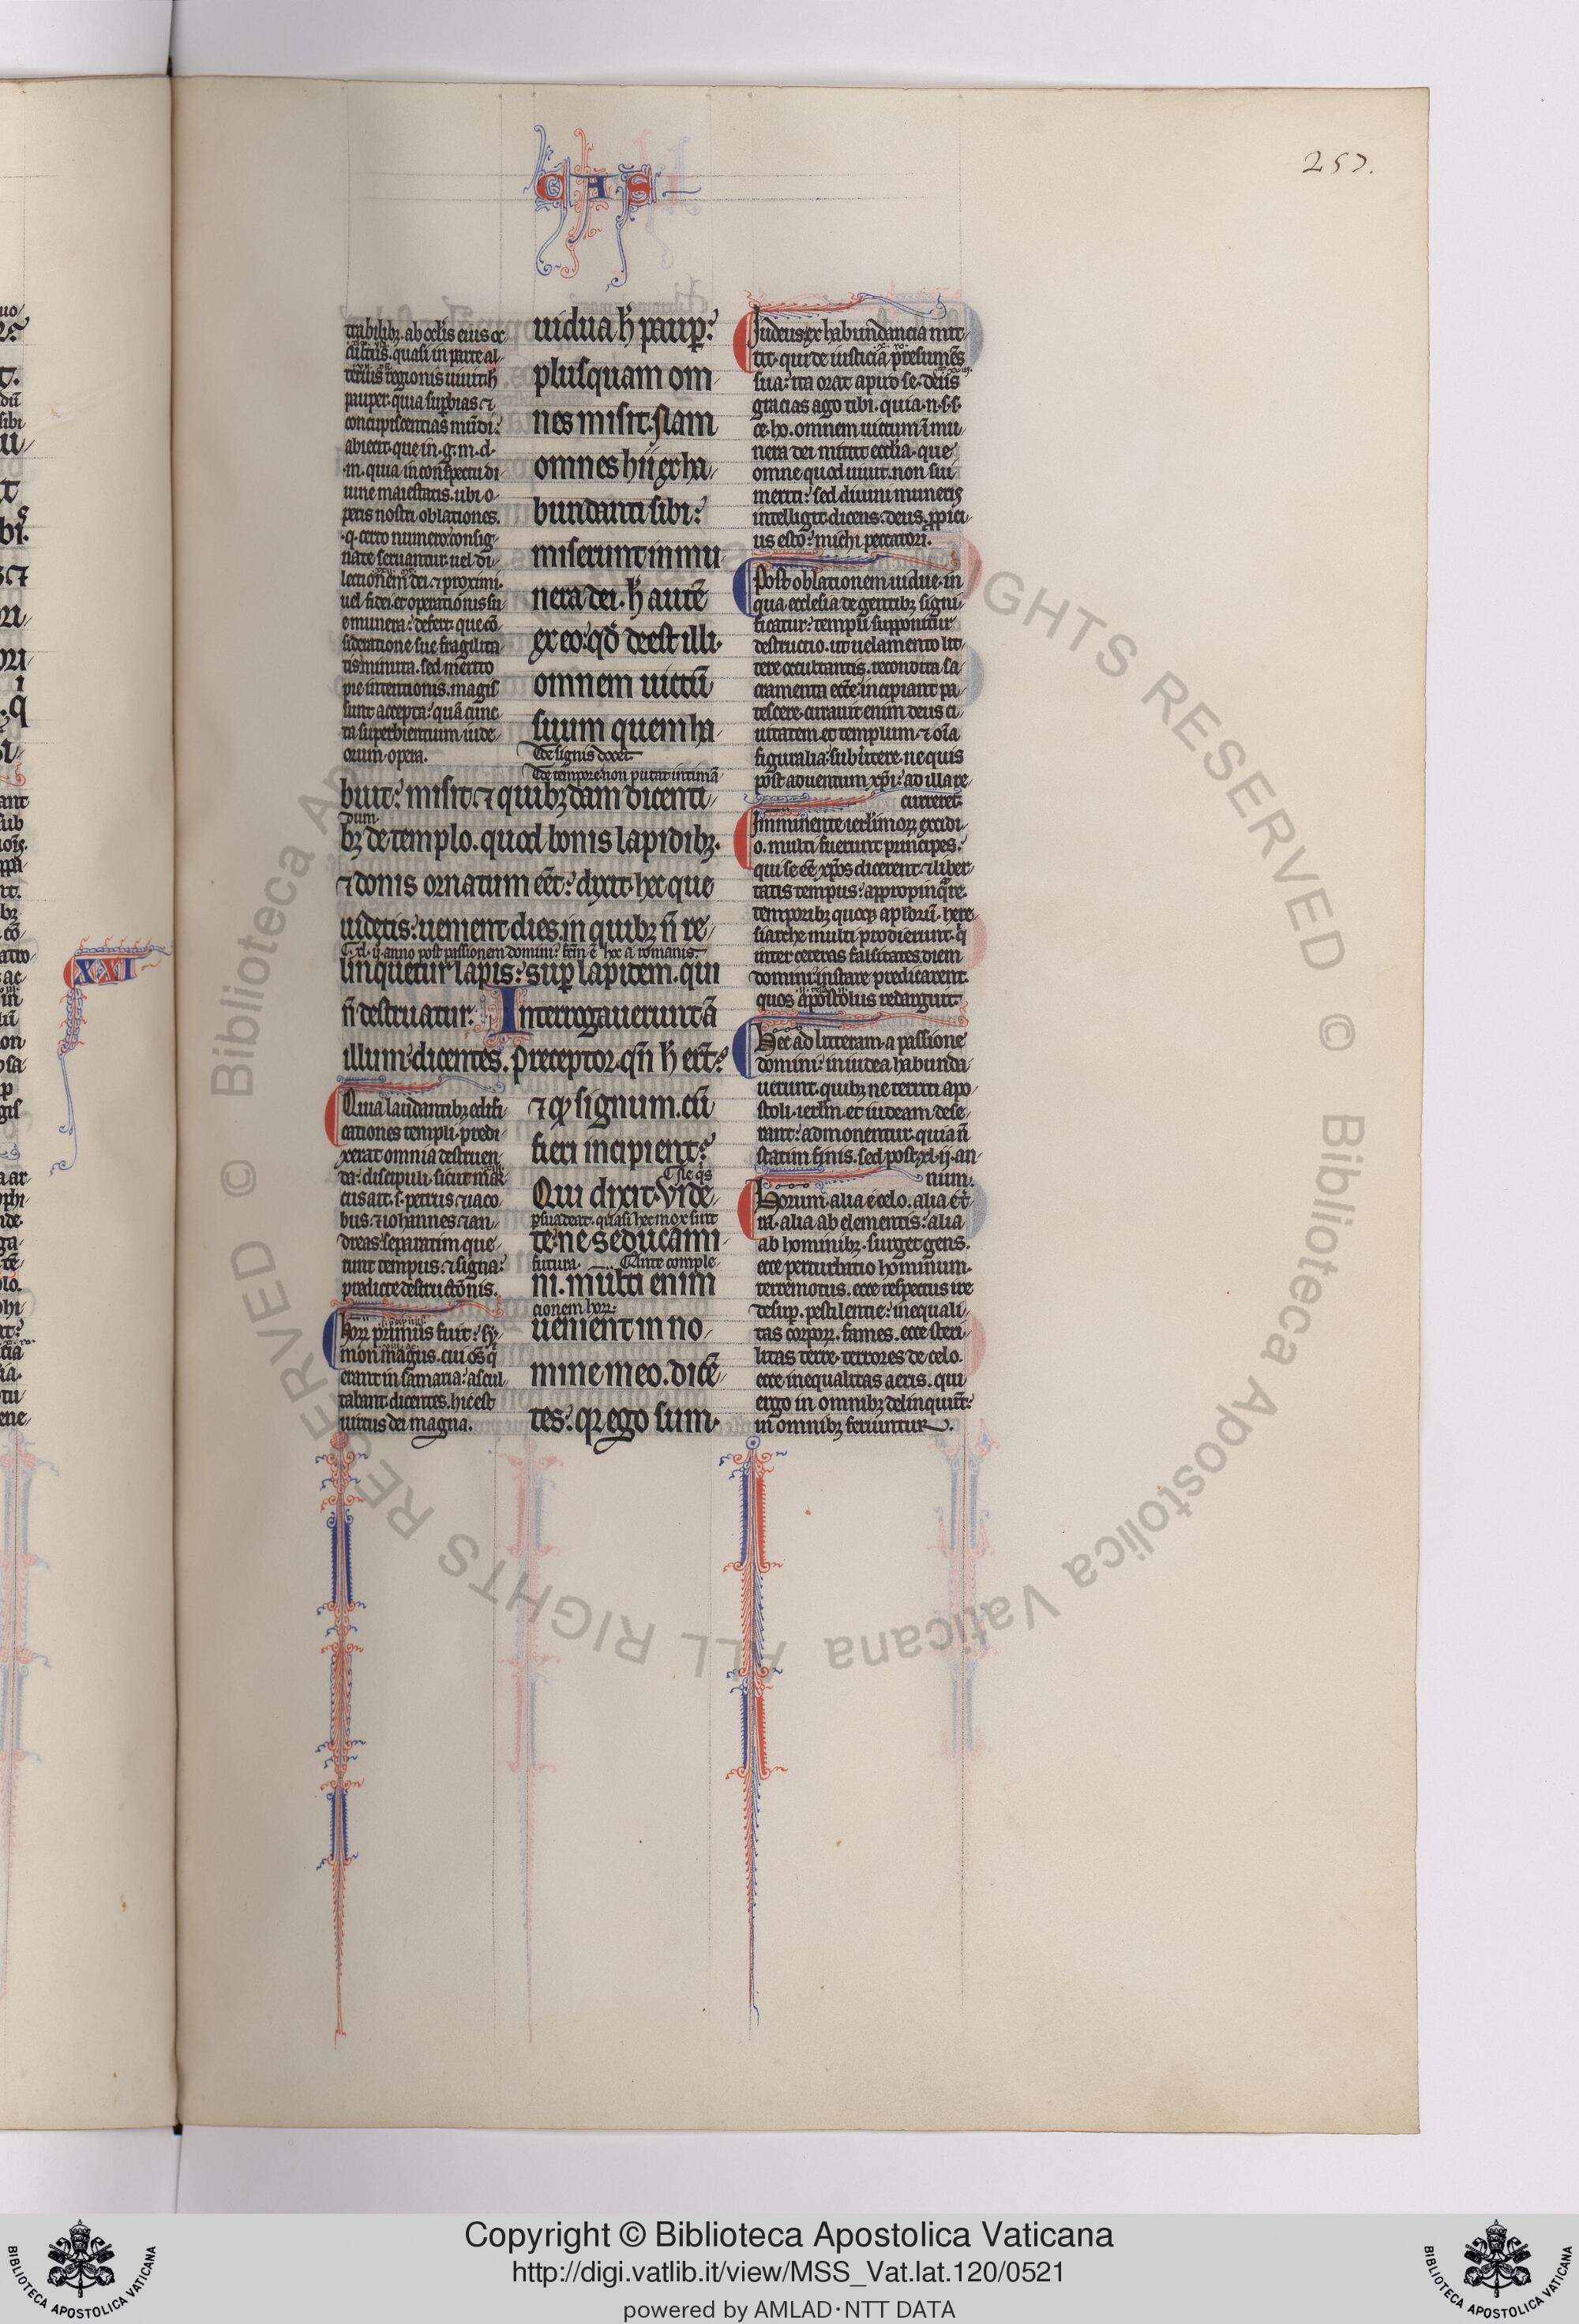 257.
CAS
trabilibꝫ. ab oclis eius oc
cultus. quasi in parte al
terius regionis uiuit hͥ
pauper. quia suꝑbias ⁊
concupiscentias mūdi:
abiecit. que in. g. m. d.
m. quia in conspectu di
uine maiestatis. ubi o
peris nostri oblationes.
q. certo numero consig
nate seruantur. uel di
lectionem dei. ⁊ proximi.
uel fidei et operationis su
e munera: defert. que cō
sideratione sue fragilita
tis minuta. sed merito
pie intentionis. magis
sunt accepta: quā cunc
ta superbientium iude
orum opera.
uidua hͨ paupꝑ:
plusquam om
nes misit. Nam
omnes hii ex ha
bundanti sibi:
miserunt in mu
nera dei. hͨ autē
ex eo: qđ deest illi.
omnem uictū
suum quem ha
De signis docet
De tempore non putat intimā
buit: misit. ⁊ quibꝫdam dicenti
dum
bꝫ de templo. quod bonis lapidibꝫ.
⁊ donis ornatum eēt: dixit. hec que
uidetis: uenient dies. in quibꝫ n̄ re
linquetur lapis: suꝑ lapidem. qui
n̄ destruatur. Interrogauerunt ā
illum. dicentes. preceptor. qn̄ hͨ erūt:
Quia laudantibꝫ edifi
cationes templi. predi
xerat omnia destruen
da: discipuli. sicut mar
cus ait. s. petrus ⁊ iaco
bus. ⁊ iohannes ⁊ an
dreas: separatim que
runt tempus. ⁊ signa:
predicte destructōnis.
Horꝝ primus fuit: sy
mon magus. cui om̄s q̄
erant in samaria: ascul
tabant. dicentes. hic est
uirtus dei magna.
⁊ qđ signum. cū
fieri incipient:
Ne q̄s
Qui dixit. Vide
ꝑsuadeat. quasi hec mox sint
te: ne seducami
futura. Ante comple
ni. multi enim
cionem horꝝ.
uenient in no
mine meo. dicē
tes: qꝛ ego sum.
Iudeus ex habundancia mit
tit. qui de iusticia presumēs
sua: ita orat apud se. deus
gracias ago tibi. quia. n. s. s.
ce. ho. omnem uictum ī mu
nera dei mittit eccl̄ia. que
omne quod uiuit. non sui
meriti: sed diuini muneris
intelligit. dicens. deus ꝓpici
us esto: michi peccatori.
Post oblationem uidue. in
qua ecclesia de gentibꝫ signi
ficatur: templi supponitur
destructio. ut uelamento lit
tere occultantis. recondita sa
cramenta eccl̄e incipiant pa
tescere. curauit enim deus ci
uitatem. et templum. ⁊ oīa
figuralia: subuertere. ne quis
post aduentum xp̄i: ad illa re
curreret.
Imminente ierl̄imorꝝ excidi
o. multi fuerunt principes:
qui se eē xp̄os dicerent. ⁊ liber
tatis tempus: appropinq̄re.
temporibꝫ quoqꝫ apl̄orū. here
siarche multi prodierunt. q̄
inter ceteras falsitates. diem
domini instare predicarent.
quos apostolus redarguit.
Hec ad litteram. a passione
domini: in iudea habunda
uerunt. quibꝫ ne territi apo
stoli. ierl̄m. et iudeam dese
rant: admonentur. quia n̄
statim finis. sed post. xl. ij. an
num.
Horum alia e celo. alia e t̄
ra. alia ab elementis: alia
ab hominibꝫ. surget gens.
ecce perturbatio hominum.
terremotus. ecce respectus ire
desuꝑ. pestilentie: inequali
tas corporꝝ. fames. ecce steri
litas terre. terrores de celo.
ecce inequalitas aeris. qui
ergo in omnibꝫ delinquūt:
in omnibꝫ feriuntur.
XXI
Copyright © Biblioteca Apostolica Vaticana
http://digi.vatlib.it/view/MSS_Vat.lat.120/0521
powered by AMLAD·NTT DATA
BIBLIOTECA APOSTOLICA VATICANA
BIBLIOTECA APOSTOLICA VATICANA
© Biblioteca Apostolica Vaticana ALL RIGHTS RESERVED